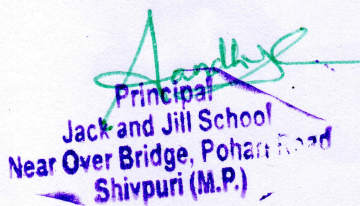 Principal
Jack and Jill School
Near Over Bridge, Pohari Road
Shivpuri (M.P.)